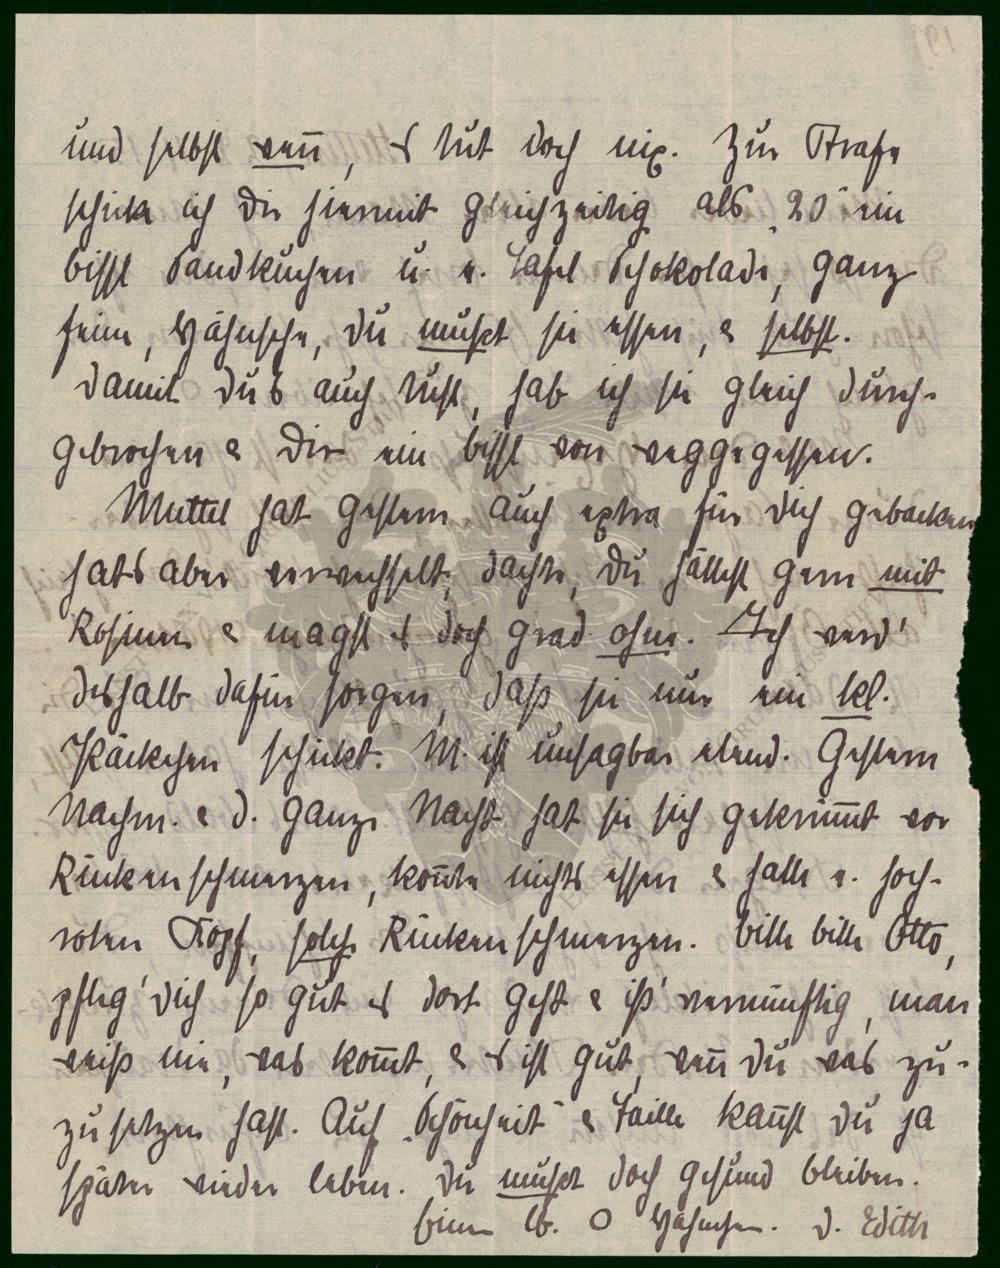 und selbst wen̄, 's tut doch nix. Zur Strafe
schick ich dir hiermit gleichzeitig als „20" ein
bissl Sandkuchen u. e. Tafel Schokolade, ganz
feine, Hähnsche, du mußt sie essen, & selbst.
Damit du's auch tust, hab ich sie gleich durch-
gebrochen & Dir ein bissl von weggegessen.
Muttel hat gestern auch extra für dich gebacken
hats aber verwechselt, dachte, du hättest gern mit
Rosinen & magst 's doch grad ohne. Ich werd'
deshalb dafür sorgen, daß sie nur ein kl.
Päckchen schickt. M. ist unsagbar elend. Gestern
Nachm. & d. ganze Nacht hat sie sich gekrüm̄t vor
Rückenschmerzen, kon̄te nichts essen & hatte e. hoch-
roten Kopf, solche Rückenschmerzen. Bitte bitte Otto,
pfleg' dich so gut 's dort geht & iß' vernünftig, man
weiß nie, was kom̄t, & 's ist gut, wen̄ du was zu-
zusetzen hast. Auf „Schönheit" & Taille kan̄st du ja
später wieder leben. Du mußt doch gesund bleiben.
lb. O Hähnchen. D. Edith